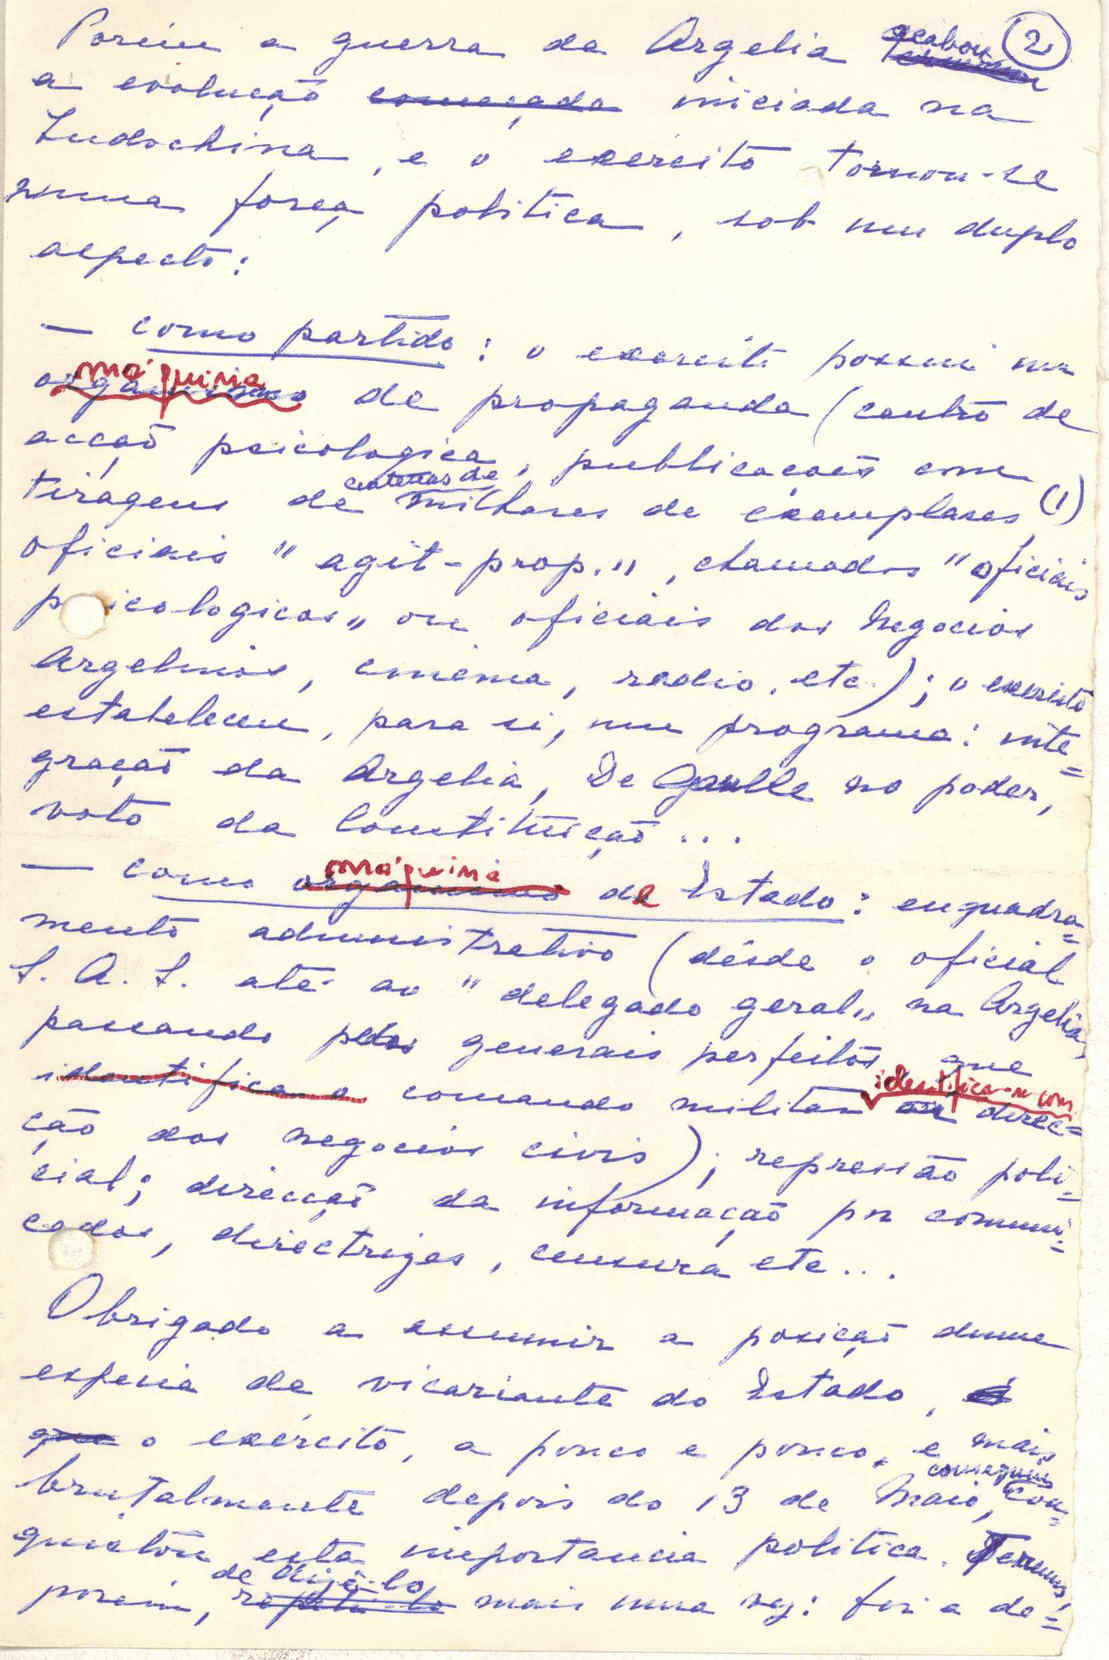 2
Porém a guerra da Argelia acabou
a evolução começada iniciada na
Indochina, e o exército tornou-se
numa força politica, sob um duplo
aspecto:
— como partido: o exercito possui uma
máquina
organismo de propaganda (centro de
acção psicologica, publicações com
centenas de
tiragens de milhares de exemplares, (1)
oficiais "agit-prop.", chamados "oficiais
psicologicos" ou oficiais dos Negocios
Argelinos, cinema, radio, etc.); o exercito
estabeleceu, para si, um programa: inte=
gração da Argelia, De Gaulle no poder,
voto da Constituição...
máquina
— como organismo de Estado: enquadra=
mento administrativo (désde o oficial
S. A. S. até ao "delegado geral" na Argelia,
passando pelos generais perfeitos que
identifica-se com
identifica o comando militar ou direc=
ção dos negocios civis); repressão poli=
cial; direcção da informação por comuni=
cados, directrizes, censura etc...
Obrigado a assumir a posição duma
espécia de vicariante do Estado,
que o exército, a pouco e pouco, e mais
conseguiu
brutalmente depois do 13 de Maio, con=
quistou esta importancia politica. Temos,
de dizê-lo
porém, repeti-lo mais uma vez: foi a de=